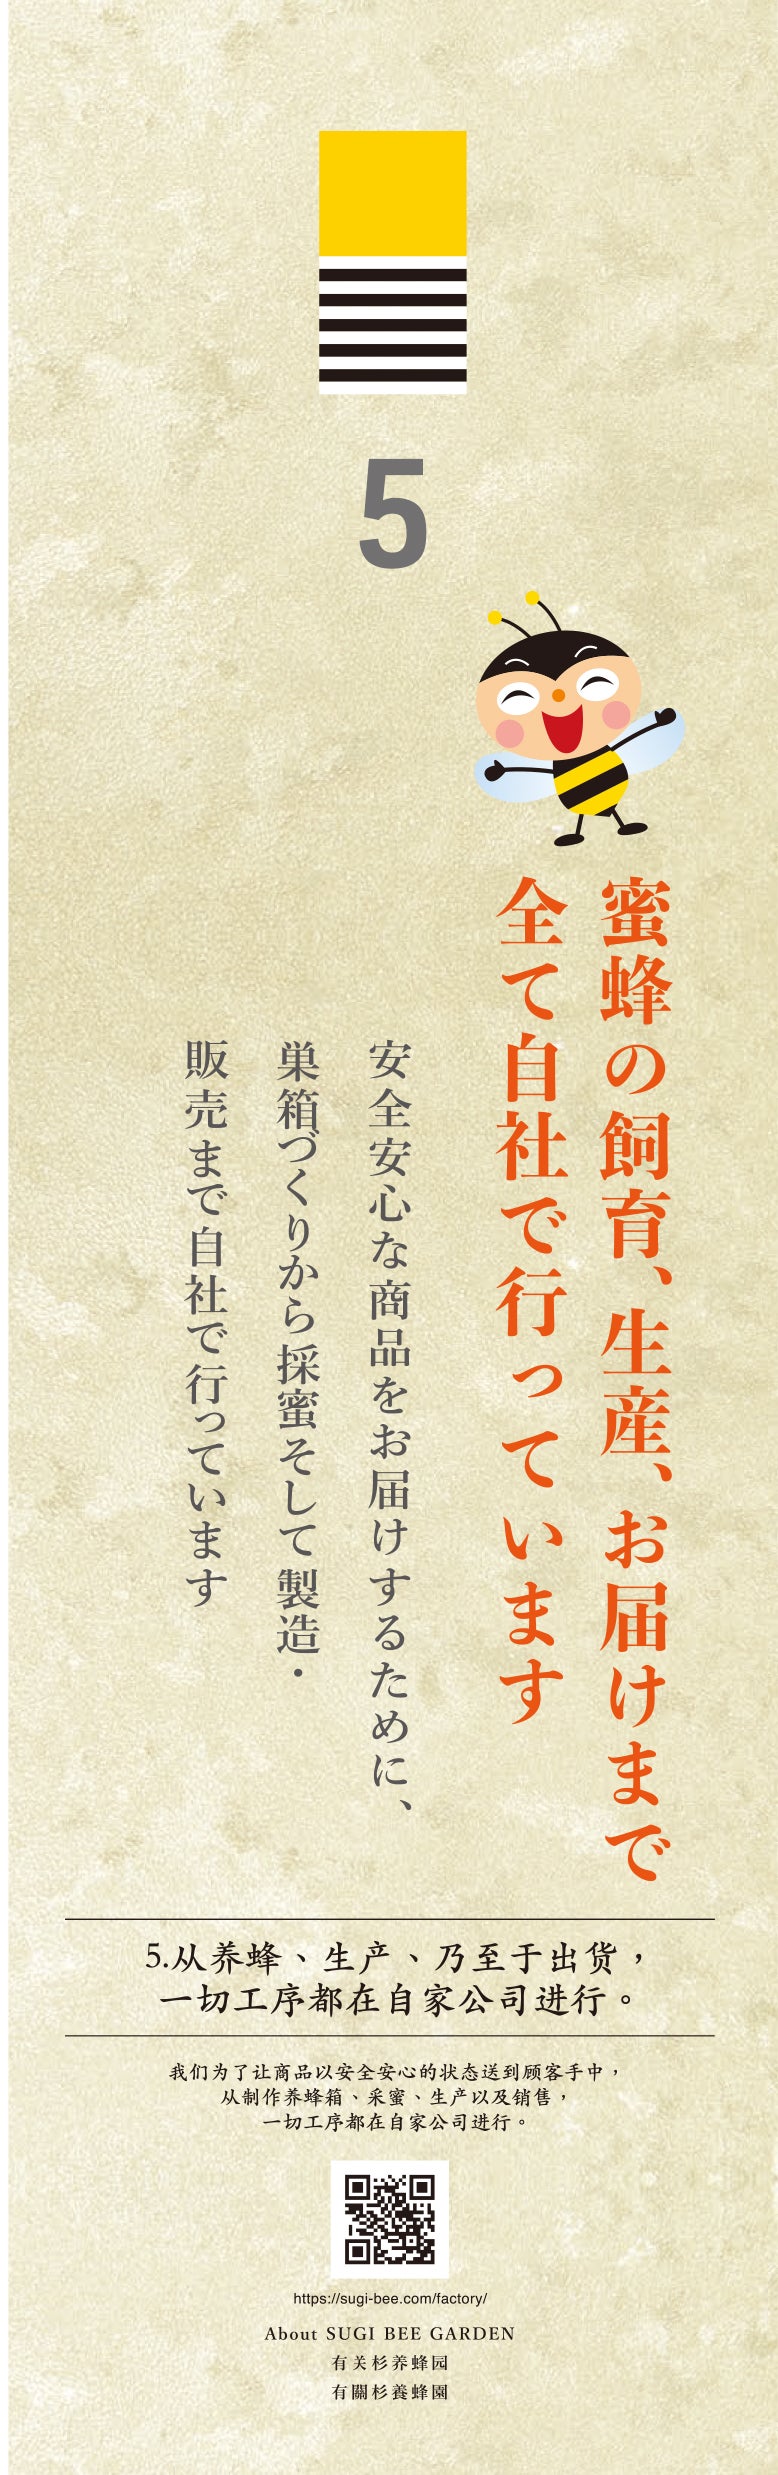 5
蜜蜂の飼育、生産、お届けまで
全て自社で行っています
安全安心な商品をお届けするために、
巣箱づくりから採蜜そして製造・
販売まで自社で行っています
5.从养蜂、生产、乃至于出货，
一切工序都在自家公司进行。
我们为了让商品以安全安心的状态送到顾客手中，
从制作养蜂箱、采蜜、生产以及销售，
一切工序都在自家公司进行。
https://sugi-bee.com/factory/
About SUGI BEE GARDEN
有关杉养蜂园
有關杉養蜂園